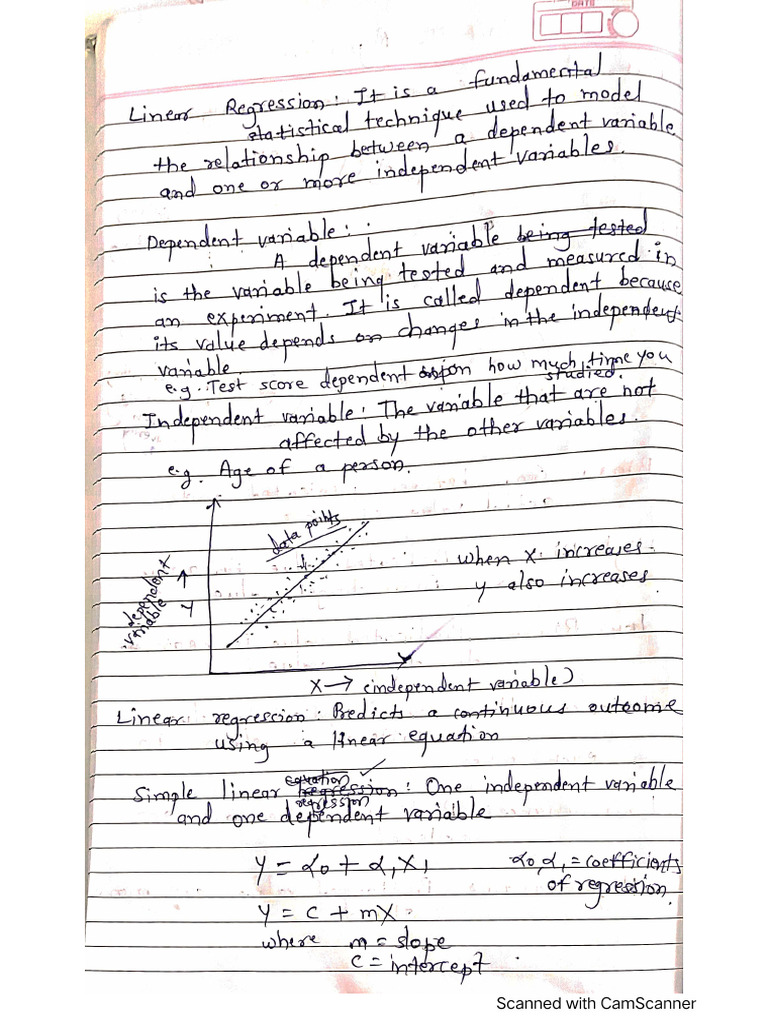 DATE
Linear Regression: It is a fundamental
statistical technique used to model
the relationship between a dependent variable
and one or more independent variables.
Dependent variable:
A dependent variable being tested
is the variable being tested and measured in
an experiment. It is called dependent because
its value depends on changes in the independent
variable.
e.g. Test score dependent upon how much time you
studied.
Independent variable: The variable that are not
affected by the other variables.
e.g. Age of a person.
data points
when x increases
y also increases
dependent
variable
Y
X → (independent variable)
Linear regression: Predicts a continuous outcome
using a linear equation
equation
Simple linear regression: One independent variable
regression
and one dependent variable
Y = α0 + α1X1
α0, α1 = coefficients
of regression.
Y = c + mX
where m = slope
c = intercept
Scanned with CamScanner